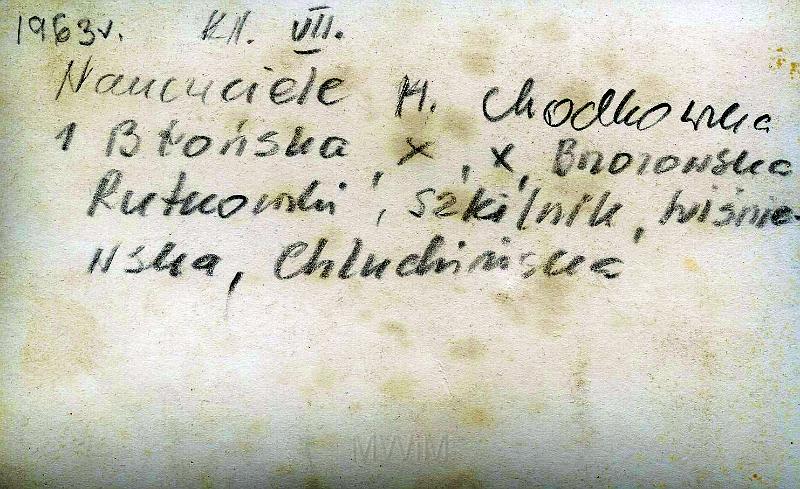 1963r. Kl. VII.
Nauczyciele H. Chodkowska
1 Błońska, x, x, Brzozowska
Rutkowski, Szkilnik, Wiśnie-
wska, Chludzińska
MWiM